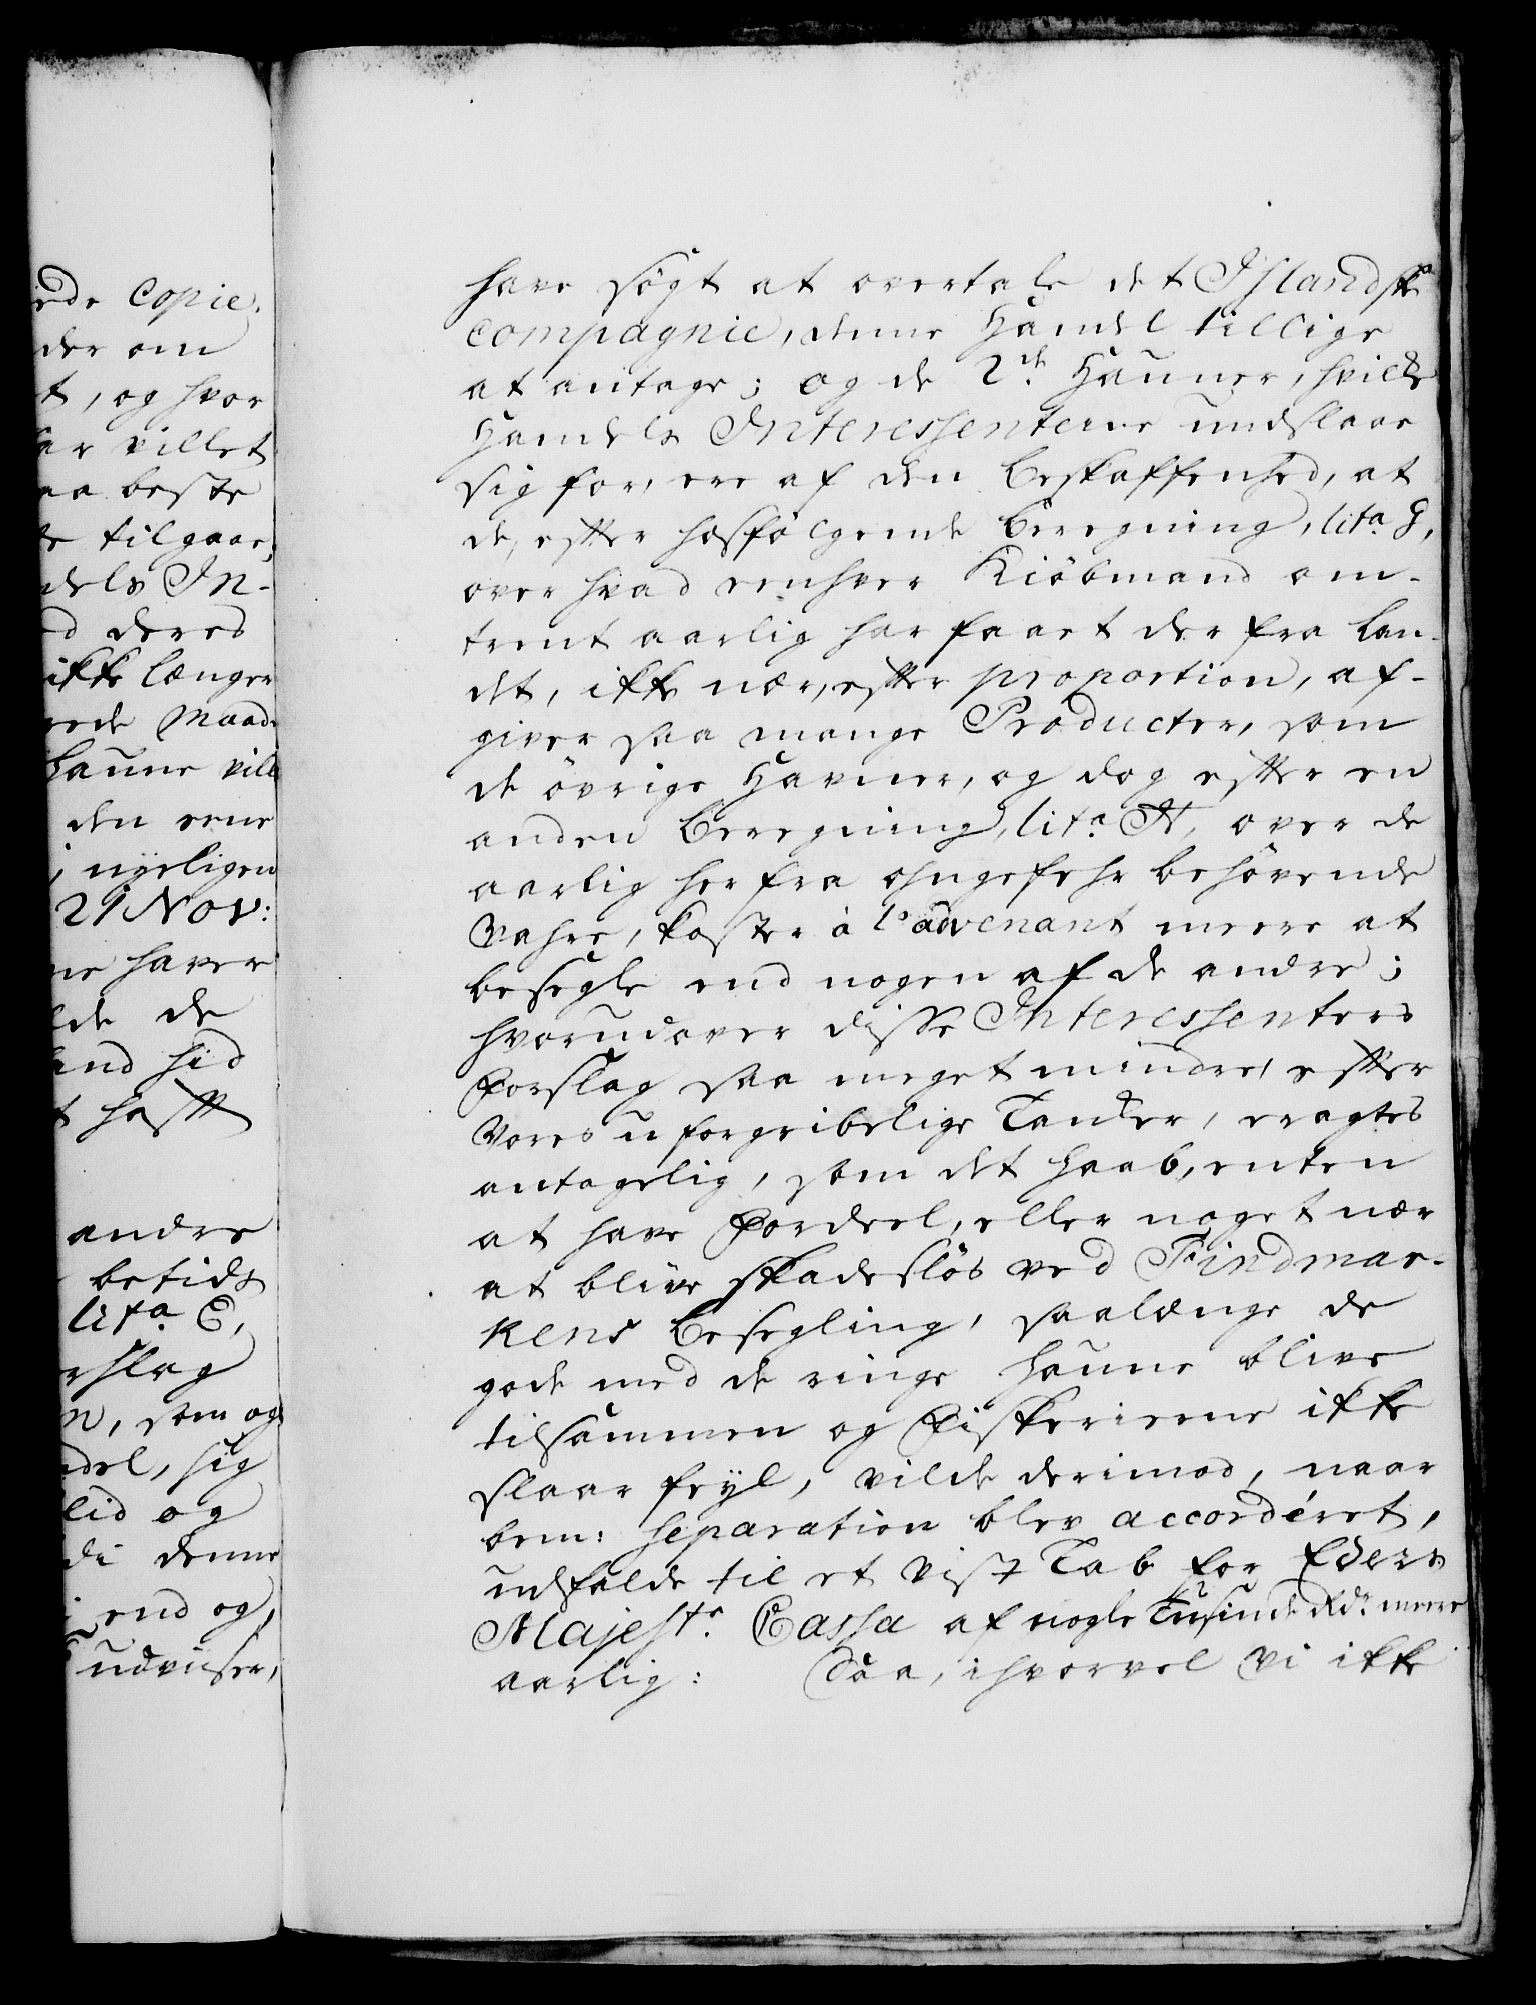 ede Copie,
der om
t, og hvor
ar villet
aa beste
te tilgaar,
dels In-
d deres
ikke længer
rede Maade
Haune vild
den eene
, nyeligen
21 Nov:
ne haver
lde de
and hid
t hafft
andre
betids
lita E,
rslag
n, som og
ndel, sig
lid og
di denne
end og,
udviser,
have søgt at overtale det Islandske
Compagnie, denne Handel tillige
at antage; og de 2de Hauner, hvilke
Handels Interessenterne undslaar
sig for, ere af den beskaffenhed, at
de, efter hosfølgende beregning, lita G,
over hvad eenhver Kiöbmand om-
trent aarlig har faaet der fra Lan-
det, ikke nær, efter proportion, af-
giver saa mange Producter, som
de övrige Havner, og dog efter en
anden beregning, lita H, over de
aarlig her fra ohngefehr behövende
Vahre, koster à l'advenant meere at
besegle end nogen af de andre;
hvorudover disse Interessenters
Forslag saa meget mindre, efter
Vores uforgribelige Tanker, eragtes
antagelig, som det haab, enten
at have Fordeel, eller noget nær
at blive skadeslös ved Findmar-
kens besegling, saalænge de
gode med de ringe Haune blive
tilsammen og Fiskerierne ikke
slaar feyl, vilde derimod, naar
bem: separation blev accorderet,
udfalde til et vist Tab for Eders
Majests. Cassa af nogle Tusinde Rdr. meere
aarlig: Saa, ihvorvel vi ikke